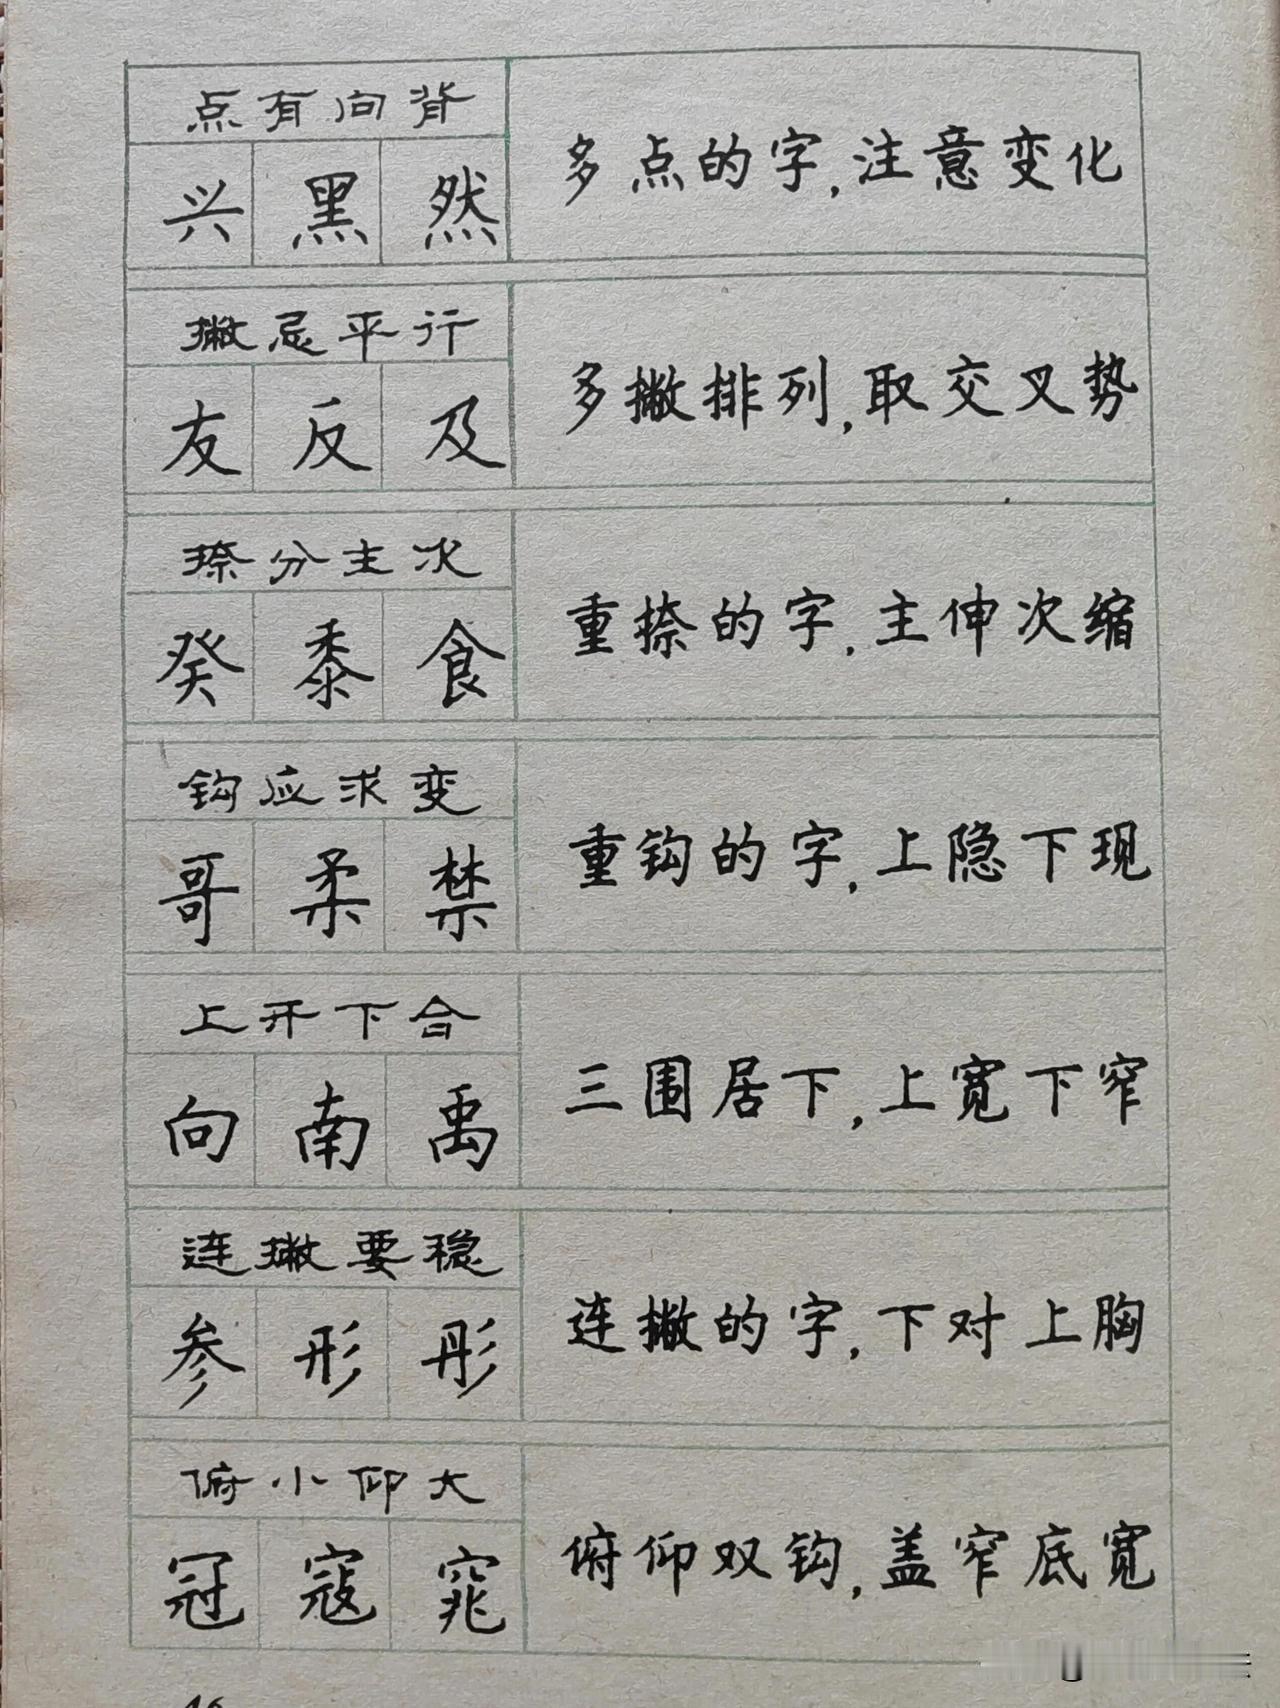 点有向背
兴黑然
多点的字,注意变化
撇忌平行
友反及
多撇排列,取交叉势
捺分主次
癸黍食
重捺的字,主伸次缩
钩应求变
哥柔禁
重钩的字,上隐下现
上开下合
向南禹
三围居下,上宽下窄
连撇要稳
参形彤
连撇的字,下对上胸
俯小仰大
冠寇窕
俯仰双钩,盖窄底宽